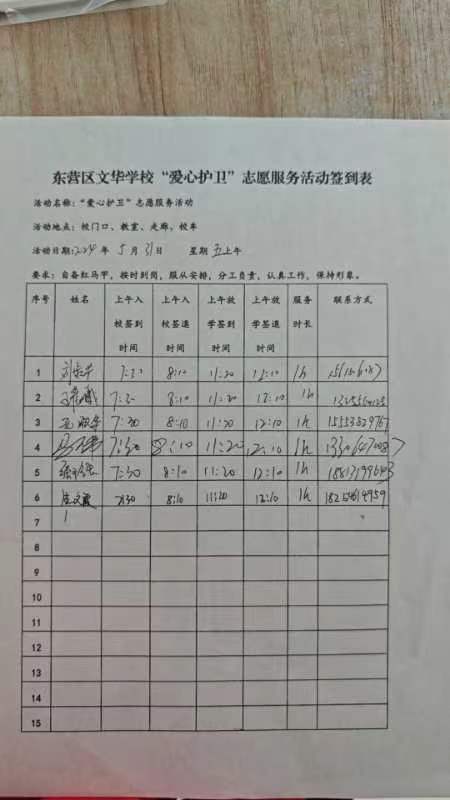 东营区文华学校“爱心护卫”志愿服务活动签到表
活动名称：“爱心护卫”志愿服务活动
活动地点：校门口、教室、走廊、校车
活动日期：2024年 5月 31日 星期 五上午
要求：自备红马甲，按时到岗，服从安排，分工负责，认真工作，保持形象。
序号 姓名 上午入校签到时间 上午入校签退时间 上午放学签到时间 上午放学签退时间 服务时长 联系方式
1 7:30 8:10 11:20 12:10 1h
2 7:30 8:10 11:20 12:10 1h
3 7:30 8:10 11:20 12:10 1h
4 7:30 8:10 11:20 12:10 1h
5 7:30 8:10 11:20 12:10 1h
6 7:30 8:10 11:20 12:10 1h
7
8
9
10
11
12
13
14
15